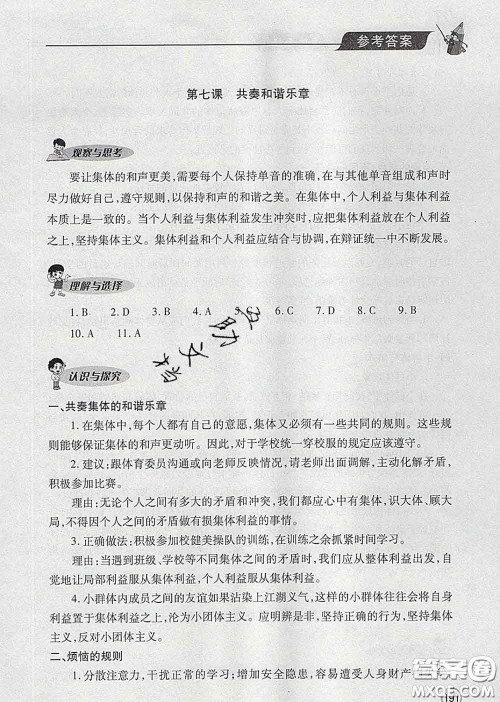 参考答案
第七课 共奏和谐乐章
观察与思考
要让集体的和声更美，需要每个人保持单音的准确，在与其他单音组成和声时
尽力做好自己，遵守规则，以保持和声的和谐之美。在集体中，个人利益与集体利益
本质上是一致的。当个人利益与集体利益发生冲突时，应把集体利益放在个人利益
之上，坚持集体主义。集体利益和个人利益应结合与协调，在辩证统一中不断发展。
理解与选择
1. B 2. D 3. B 4. A 5. C 6. C 7. D 8. C 9. B
10. A 11. A
认识与探究
一、共奏集体的和谐乐章
1. 在集体中，每个人都有自己的意愿，集体又必须有一些共同的规则。这些规
则能够保证集体的和声更动听。因此，对于学校统一穿校服的规定应该遵守。
2. 建议：跟体育委员沟通或向老师反映情况，请老师出面调解，主动化解矛盾，
积极参加比赛。
理由：无论个人之间有多大的矛盾和冲突，我们都应心中有集体，识大体、顾大
局，不得因个人之间的矛盾做有损集体利益的事情。
3. 正确做法：积极参加校健美操队的训练，在训练之余抓紧时间学习。
理由：当遇到班级、学校等不同集体之间的矛盾时，我们应从整体利益出发，自
觉地让局部利益服从集体利益，个人利益服从集体利益。
4. 小群体内成员之间的友谊如果沾染上江湖义气，这样的小群体往往会将自
身利益置于集体利益之上，沦为小团体主义。应明辨是非，坚持正确的行为，坚持集
体主义，反对小团体主义。
二、烦恼的规则
1. 分散注意力，干扰正常的学习；增加安全隐患，容易遭受人身财产
191
答案圈
MXQE.COM